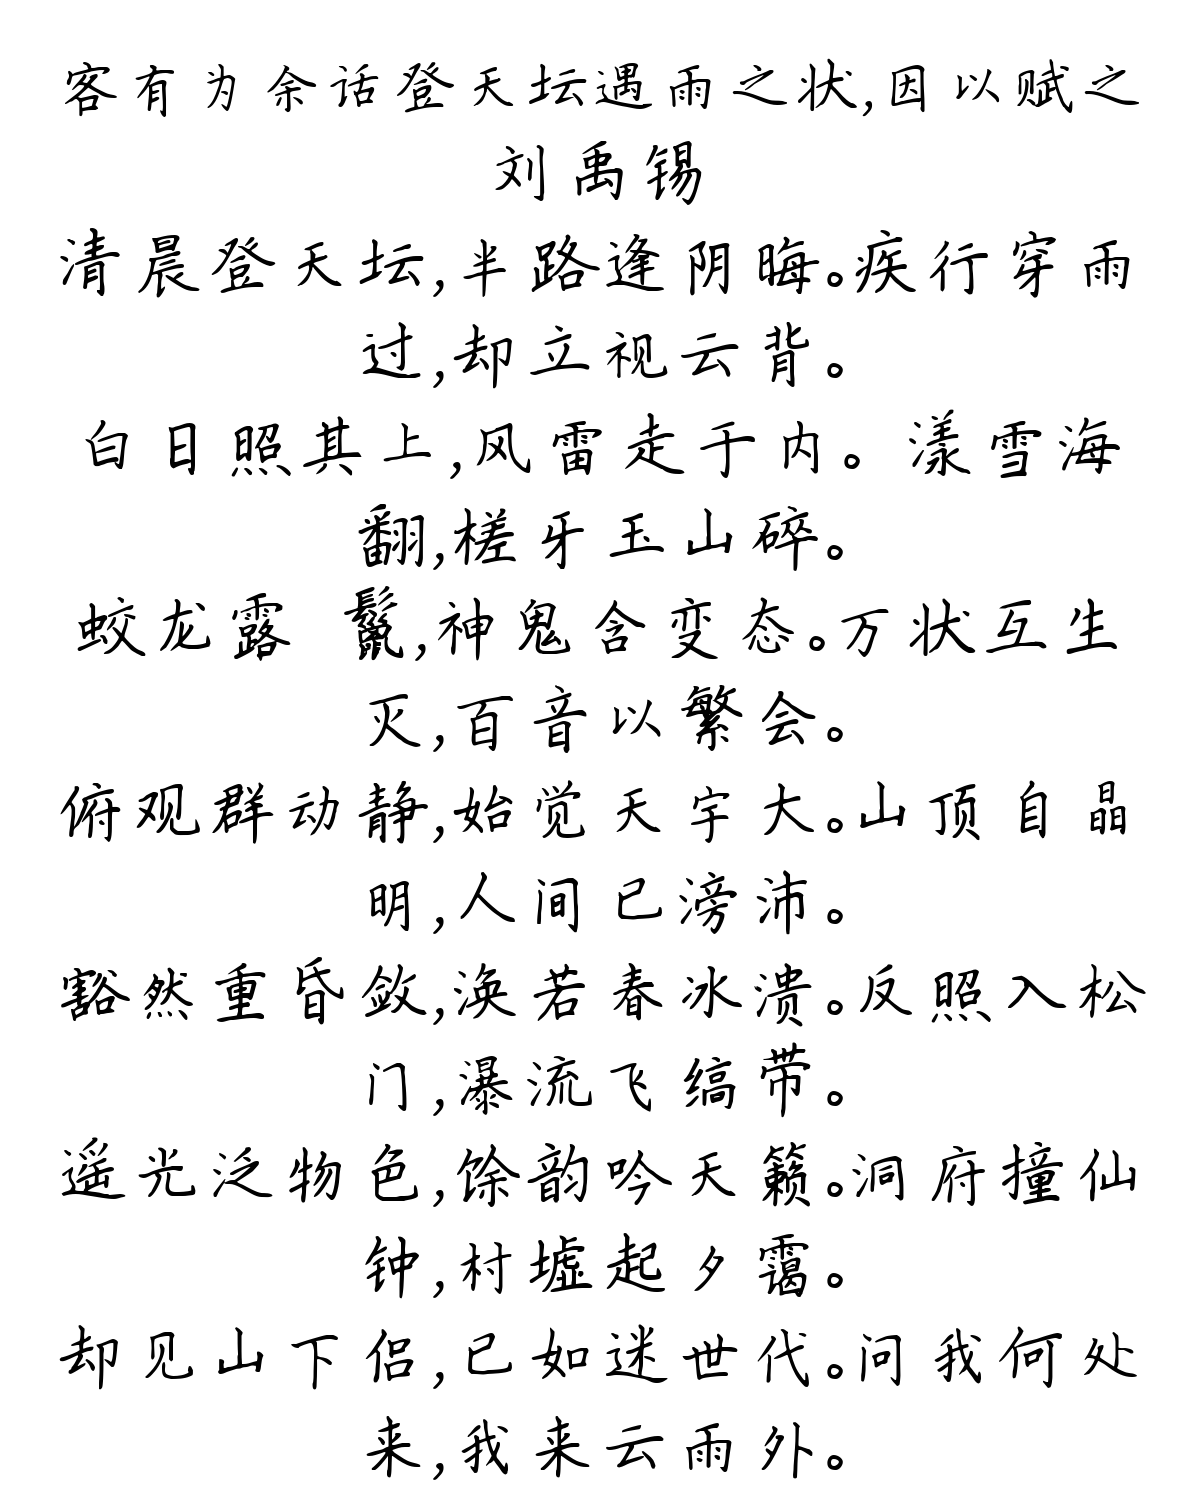 客有为余话登天坛遇雨之状,因以赋之
刘禹锡
清晨登天坛,半路逢阴晦。疾行穿雨
过,却立视云背。
白日照其上,风雷走于内。滉漾雪海
翻,槎牙玉山碎。
蛟龙露 鬣,神鬼含变态。万状互生
灭,百音以繁会。
俯观群动静,始觉天宇大。山顶自晶
明,人间已滂沛。
豁然重昏敛,涣若春冰溃。反照入松
门,瀑流飞缟带。
遥光泛物色,馀韵吟天籁。洞府撞仙
钟,村墟起夕霭。
却见山下侣,已如迷世代。问我何处
来,我来云雨外。